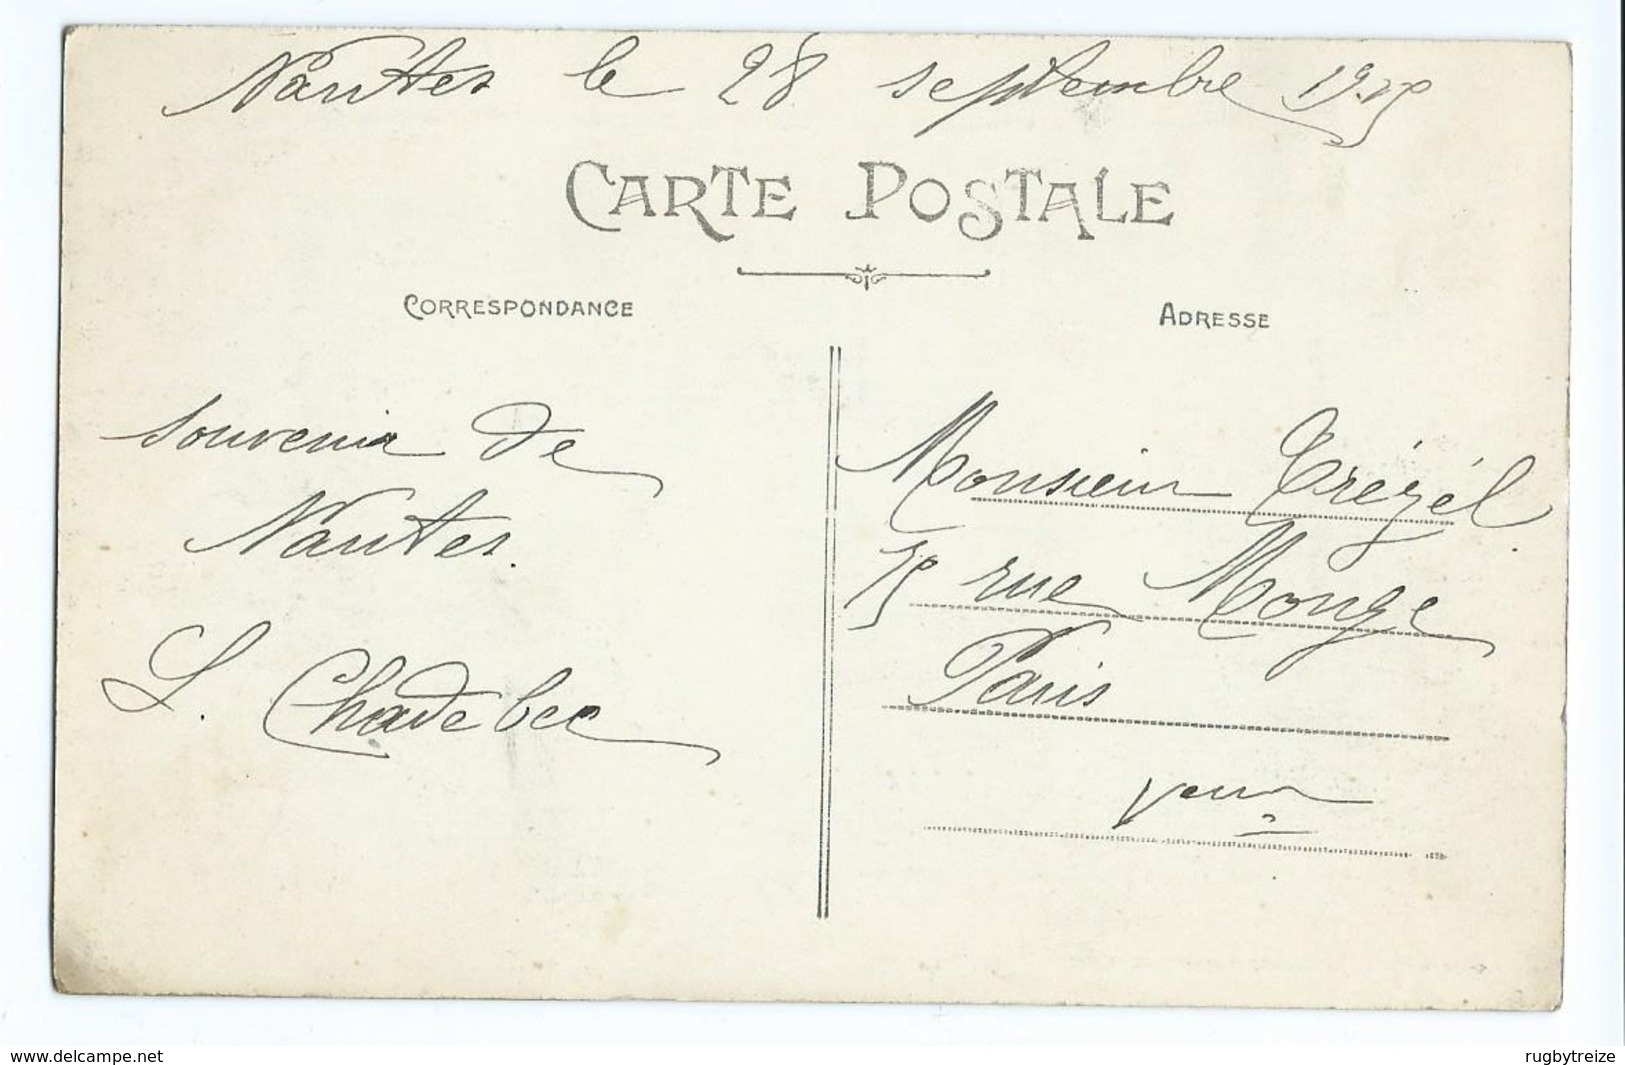 Nantes le 28 septembre
CARTE POSTALE
CORRESPONDANCE
ADRESSE
Souvenir de
Nantes.
L. Chadebec
Monsieur Trézél
rue Monge
Paris
www.delcampe.net
rugbytreize